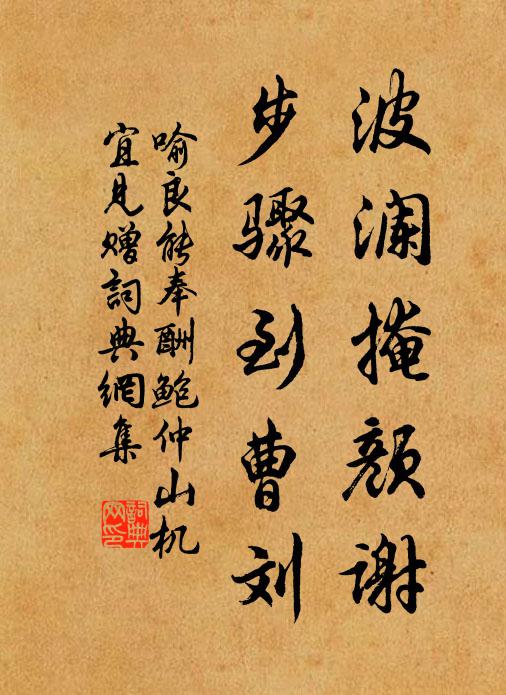 波澜掩颜谢
步骤到曹刘
喻良能奉酬鲍仲山机
宜見赠詞典網集
詞典网印